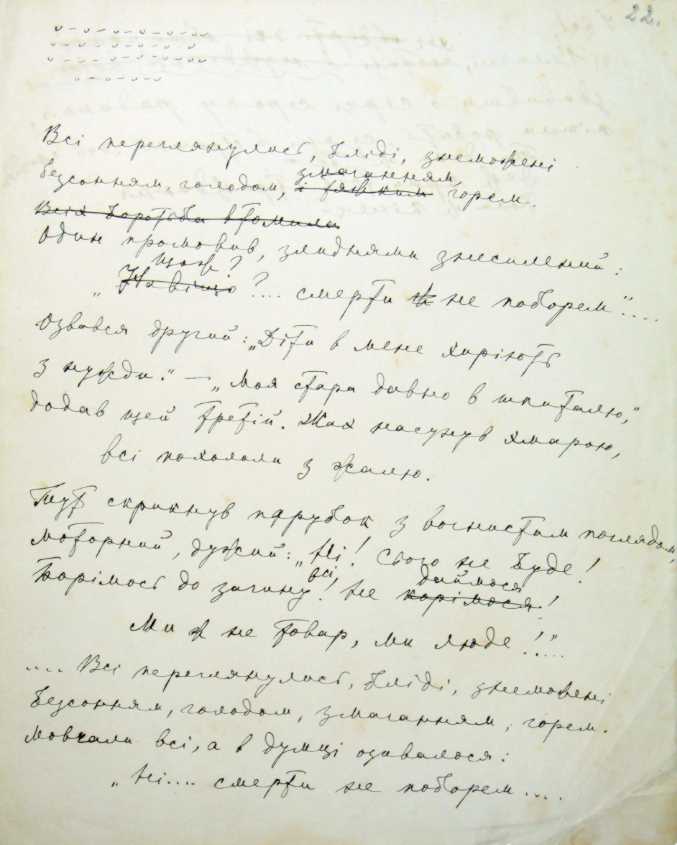 22.
Всі переглянулись, бліді, знеможені
змаганням,
безсонням, голодом, і тяжким горем.
Всіх боротьба втомила
Один промовив, злиднями знесилений:
що ж?
„Навіщо?.... смерти не поборем"....
Озвався другий: „Діти в мене хиріють
з нужди." — „Моя стара давно в шпиталю,"
додав ще й третій. Жах насунув хмарою,
всі похололи з жалю.
Тут скрикнув парубок з вогнистим поглядом,
моторний, дужий: „Ні! Сього не буде!
всі, даймося
Борімось до загину! Не корімося!
Ми ж не товар, ми люде!"....
.... Всі переглянулись, бліді, знеможені
безсонням, голодом, змаганням, горем.
Мовчали всі, а в думці озивалося:
„Ні.... смерти не поборем....